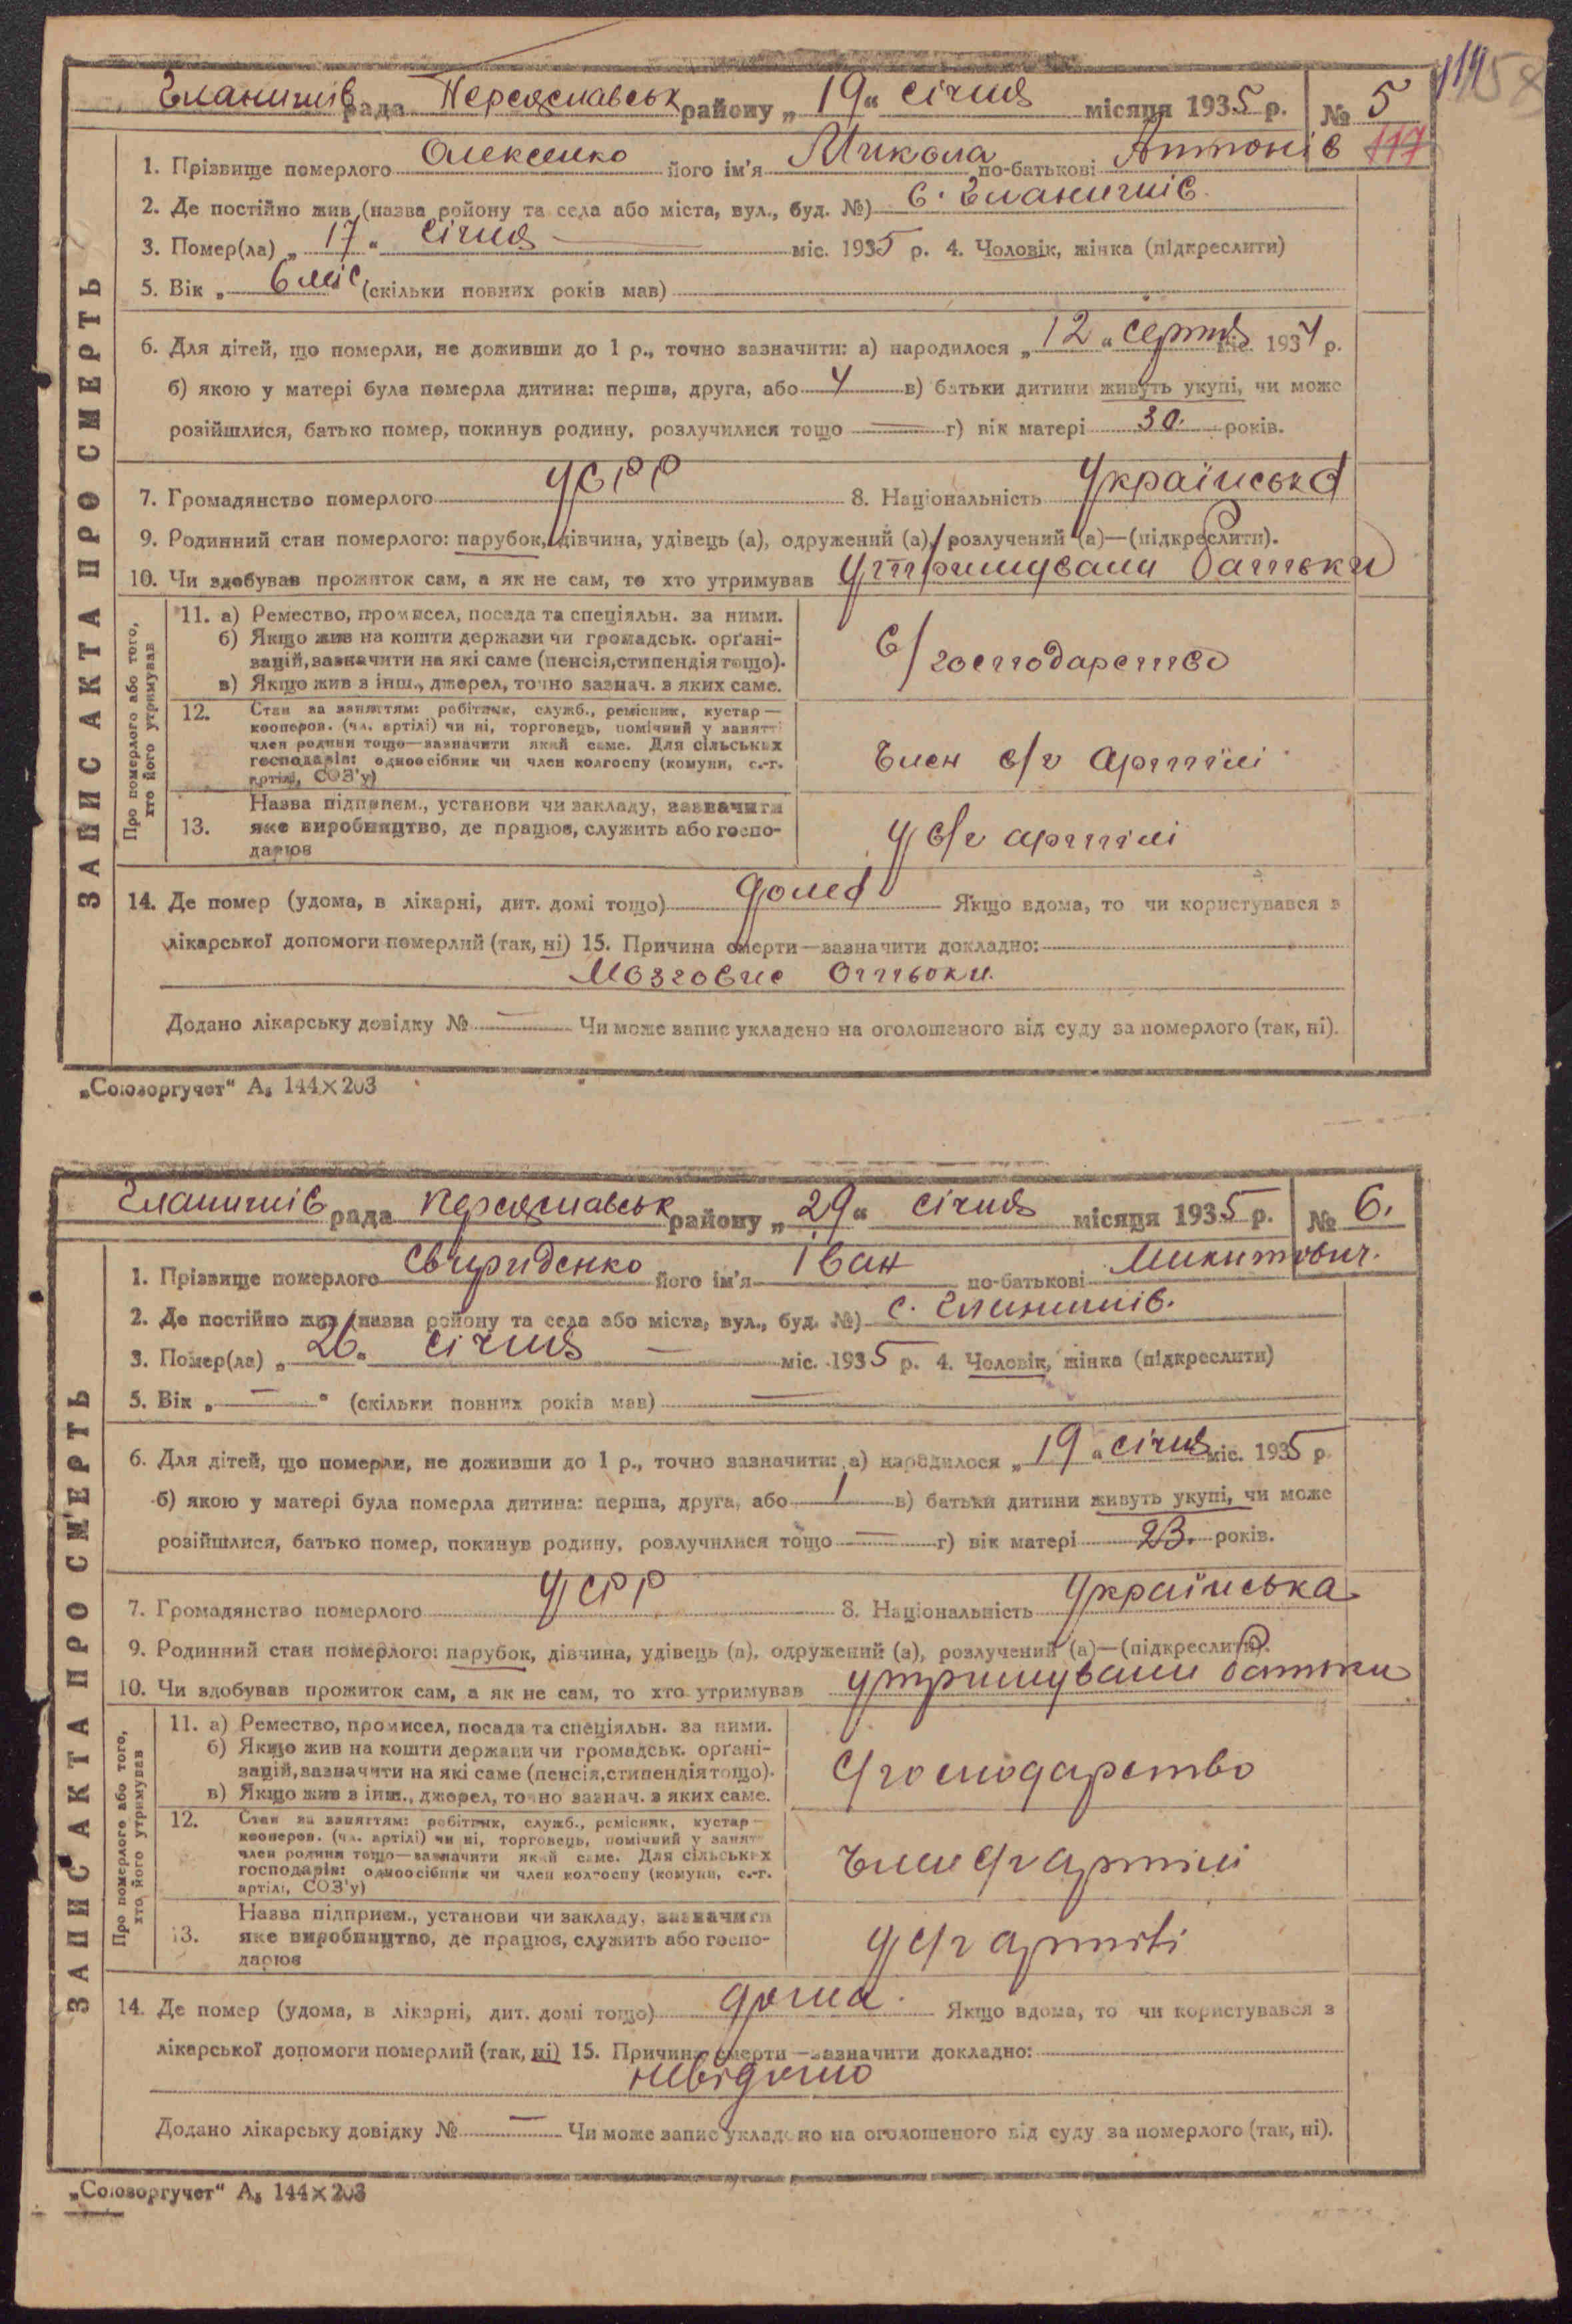 Єланишів рада Переяславськ району „ 19 “ січня місяця 1935 р. № 5
117
1. Прізвище померлого Олексенко його ім'я Микола по-батькові Антонів
2. Де постійно жив (назва району та села або міста, вул., буд. №) с. Єланишів.
3. Помер(ла) „ 17 “ січня — міс. 1935 р. 4. Чоловік, жінка (підкреслити)
5. Вік „ 6 міс (скільки повних років мав)
6. Для дітей, що померли, не доживши до 1 р., точно зазначити: а) народилося „ 12 “ серпня міс. 1934 р.
б) якою у матері була померла дитина: перша, друга, або 4 в) батьки дитини живуть укупі, чи може
розійшлися, батько помер, покинув родину, розлучилися тощо — г) вік матері 30. років.
7. Громадянство померлого УСРР 8. Національність Українська
9. Родинний стан померлого: парубок, дівчина, удівець (а), одружений (а), розлучений (а)—(підкреслити).
10. Чи здобував прожиток сам, а як не сам, то хто утримував утримували батьки
ЗАПИС АКТА ПРО СМЕРТЬ
Про померлого або того,
хто його утримував
11. а) Ремество, промисел, посада та спеціяльн. за ними.
б) Якщо жив на кошти держави чи громадськ. орґані-
зацій, зазначити на які саме (пенсія, стипендія тощо).
в) Якщо жив з інш., джерел, точно зазнач. з яких саме.
С/господарство
12. Стан за заняттям: робітник, служб., ремісник, кустар—
кооперов. (чл. артілі) чи ні, торговець, помічний у занятті
член родини тощо—зазначити який саме. Для сільських
господарів: одноосібник чи член колгоспу (комуни, с.-г.
артілі, СОЗ'у)
Член с/г артілі
Назва підприєм., установи чи закладу, зазначити
13. яке виробництво, де працює, служить або госпо-
дарює
У с/г артілі
14. Де помер (удома, в лікарні, дит. домі тощо) дома Якщо вдома, то чи користувався з
лікарської допомоги померлий (так, ні) 15. Причина смерти—зазначити докладно:
Мозговие отьоки.
Додано лікарську довідку № — Чи може запис укладено на оголошеного від суду за померлого (так, ні).
„Союзоргучет“ А₅ 144×203
Єланишів рада Переяславськ району „ 29 “ січня місяця 1935 р. № 6.
1. Прізвище померлого Свириденко його ім'я Іван по-батькові Микитович.
2. Де постійно жив (назва району та села або міста, вул., буд. №) с. Єланишів.
3. Помер(ла) „ 26 “ січня — міс. 1935 р. 4. Чоловік, жінка (підкреслити)
5. Вік „ — “ (скільки повних років мав) —
6. Для дітей, що померли, не доживши до 1 р., точно зазначити: а) народилося „ 19 “ січня міс. 1935 р
б) якою у матері була померла дитина: перша, друга, або 1 в) батьки дитини живуть укупі, чи може
розійшлися, батько помер, покинув родину, розлучилися тощо — г) вік матері 23. років.
7. Громадянство померлого УСРР 8. Національність Українська
9. Родинний стан померлого: парубок, дівчина, удівець (а), одружений (а), розлучений (а)—(підкреслити).
10. Чи здобував прожиток сам, а як не сам, то хто утримував утримували батьки
ЗАПИС АКТА ПРО СМЕРТЬ
Про померлого або того,
хто його утримував
11. а) Ремество, промисел, посада та спеціяльн. за ними.
б) Якщо жив на кошти держави чи громадськ. орґані-
зацій, зазначити на які саме (пенсія, стипендія тощо).
в) Якщо жив з інш., джерел, точно зазнач. з яких саме.
С/господарство
12. Стан за заняттям: робітник, служб., ремісник, кустар—
кооперов. (чл. артілі) чи ні, торговець, помічний у занятті
член родини тощо—зазначити який саме. Для сільських
господарів: одноосібник чи член колгоспу (комуни, с.-г.
артілі, СОЗ'у)
Член с/г артілі
Назва підприєм., установи чи закладу, зазначити
13. яке виробництво, де працює, служить або госпо-
дарює
У с/г артілі
14. Де помер (удома, в лікарні, дит. домі тощо) дома. Якщо вдома, то чи користувався з
лікарської допомоги померлий (так, ні) 15. Причина смерти—зазначити докладно:
невідомо
Додано лікарську довідку № — Чи може запис укладено на оголошеного від суду за померлого (так, ні).
„Союзоргучет“ А₅ 144×203